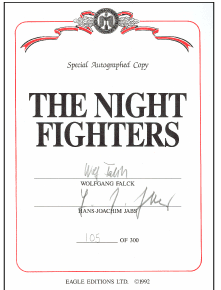 Special Autographed Copy
THE NIGHT
FIGHTERS
Wolf Falck
WOLFGANG FALCK
HANS-JOACHIM JABS
105 OF 300
EAGLE EDITIONS LTD. ©1992